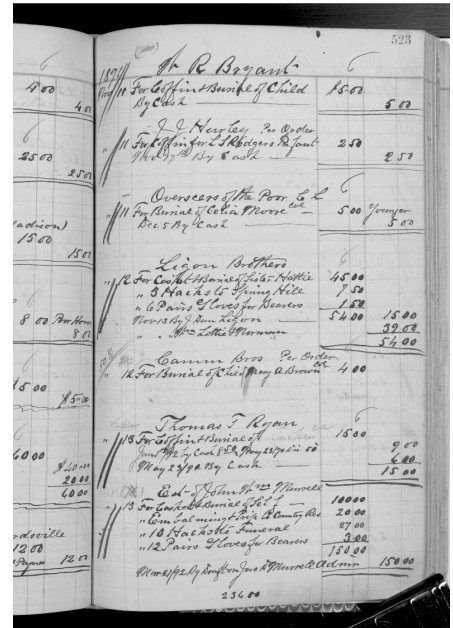 523
W R Bryant
Nov 11 For Coffin & Burial of Child $5 00
By Cash 5 00
J J Hurley Per Order
" 11 For Coffin for L J Rodgers Infant 2 50
Nov 17th By Cash 2 50
Overseers of the Poor C L
" 11 For Burial of Celia Moore Col 5 00 Younger
Dec 5 By Cash 5 00
Ligon Brothers
" 12 For Casket & Burial of Sister Hattie 45 00
" 3 Hacks to Spring Hill 7 50
" 6 Pairs Gloves for Bearers 1 50
Nov 13 By J Dan Ligon 54 00 15 00
" " Lottie Morman 39 00
54 00
Camm Bros Per Order
" 12 For Burial of Child Mary A Brown Col 4 00
Thomas T Ryan
" 13 For Coffin & Burial of 15 00
by Cash 9 00
May 23/92 By Cash 6 00
15 00
Est of John Wm Murrell
" 13 For Casket & Burial of Self 100 00
" Embalming & Trip to County Res 20 00
" 10 Hacks to Funeral 27 00
" 12 Pairs Gloves for Bearers 3 00
150 00
By Draft on Jno D Murrell Admr 150 00
234 00
4 00
4 00
25 00
25 00
adison)
15 00
15 00
8 00 Per Horn
8 00
$5 00
$5 00
60 00
$40 00
20 00
60 00
rdsville
12 00
12 00